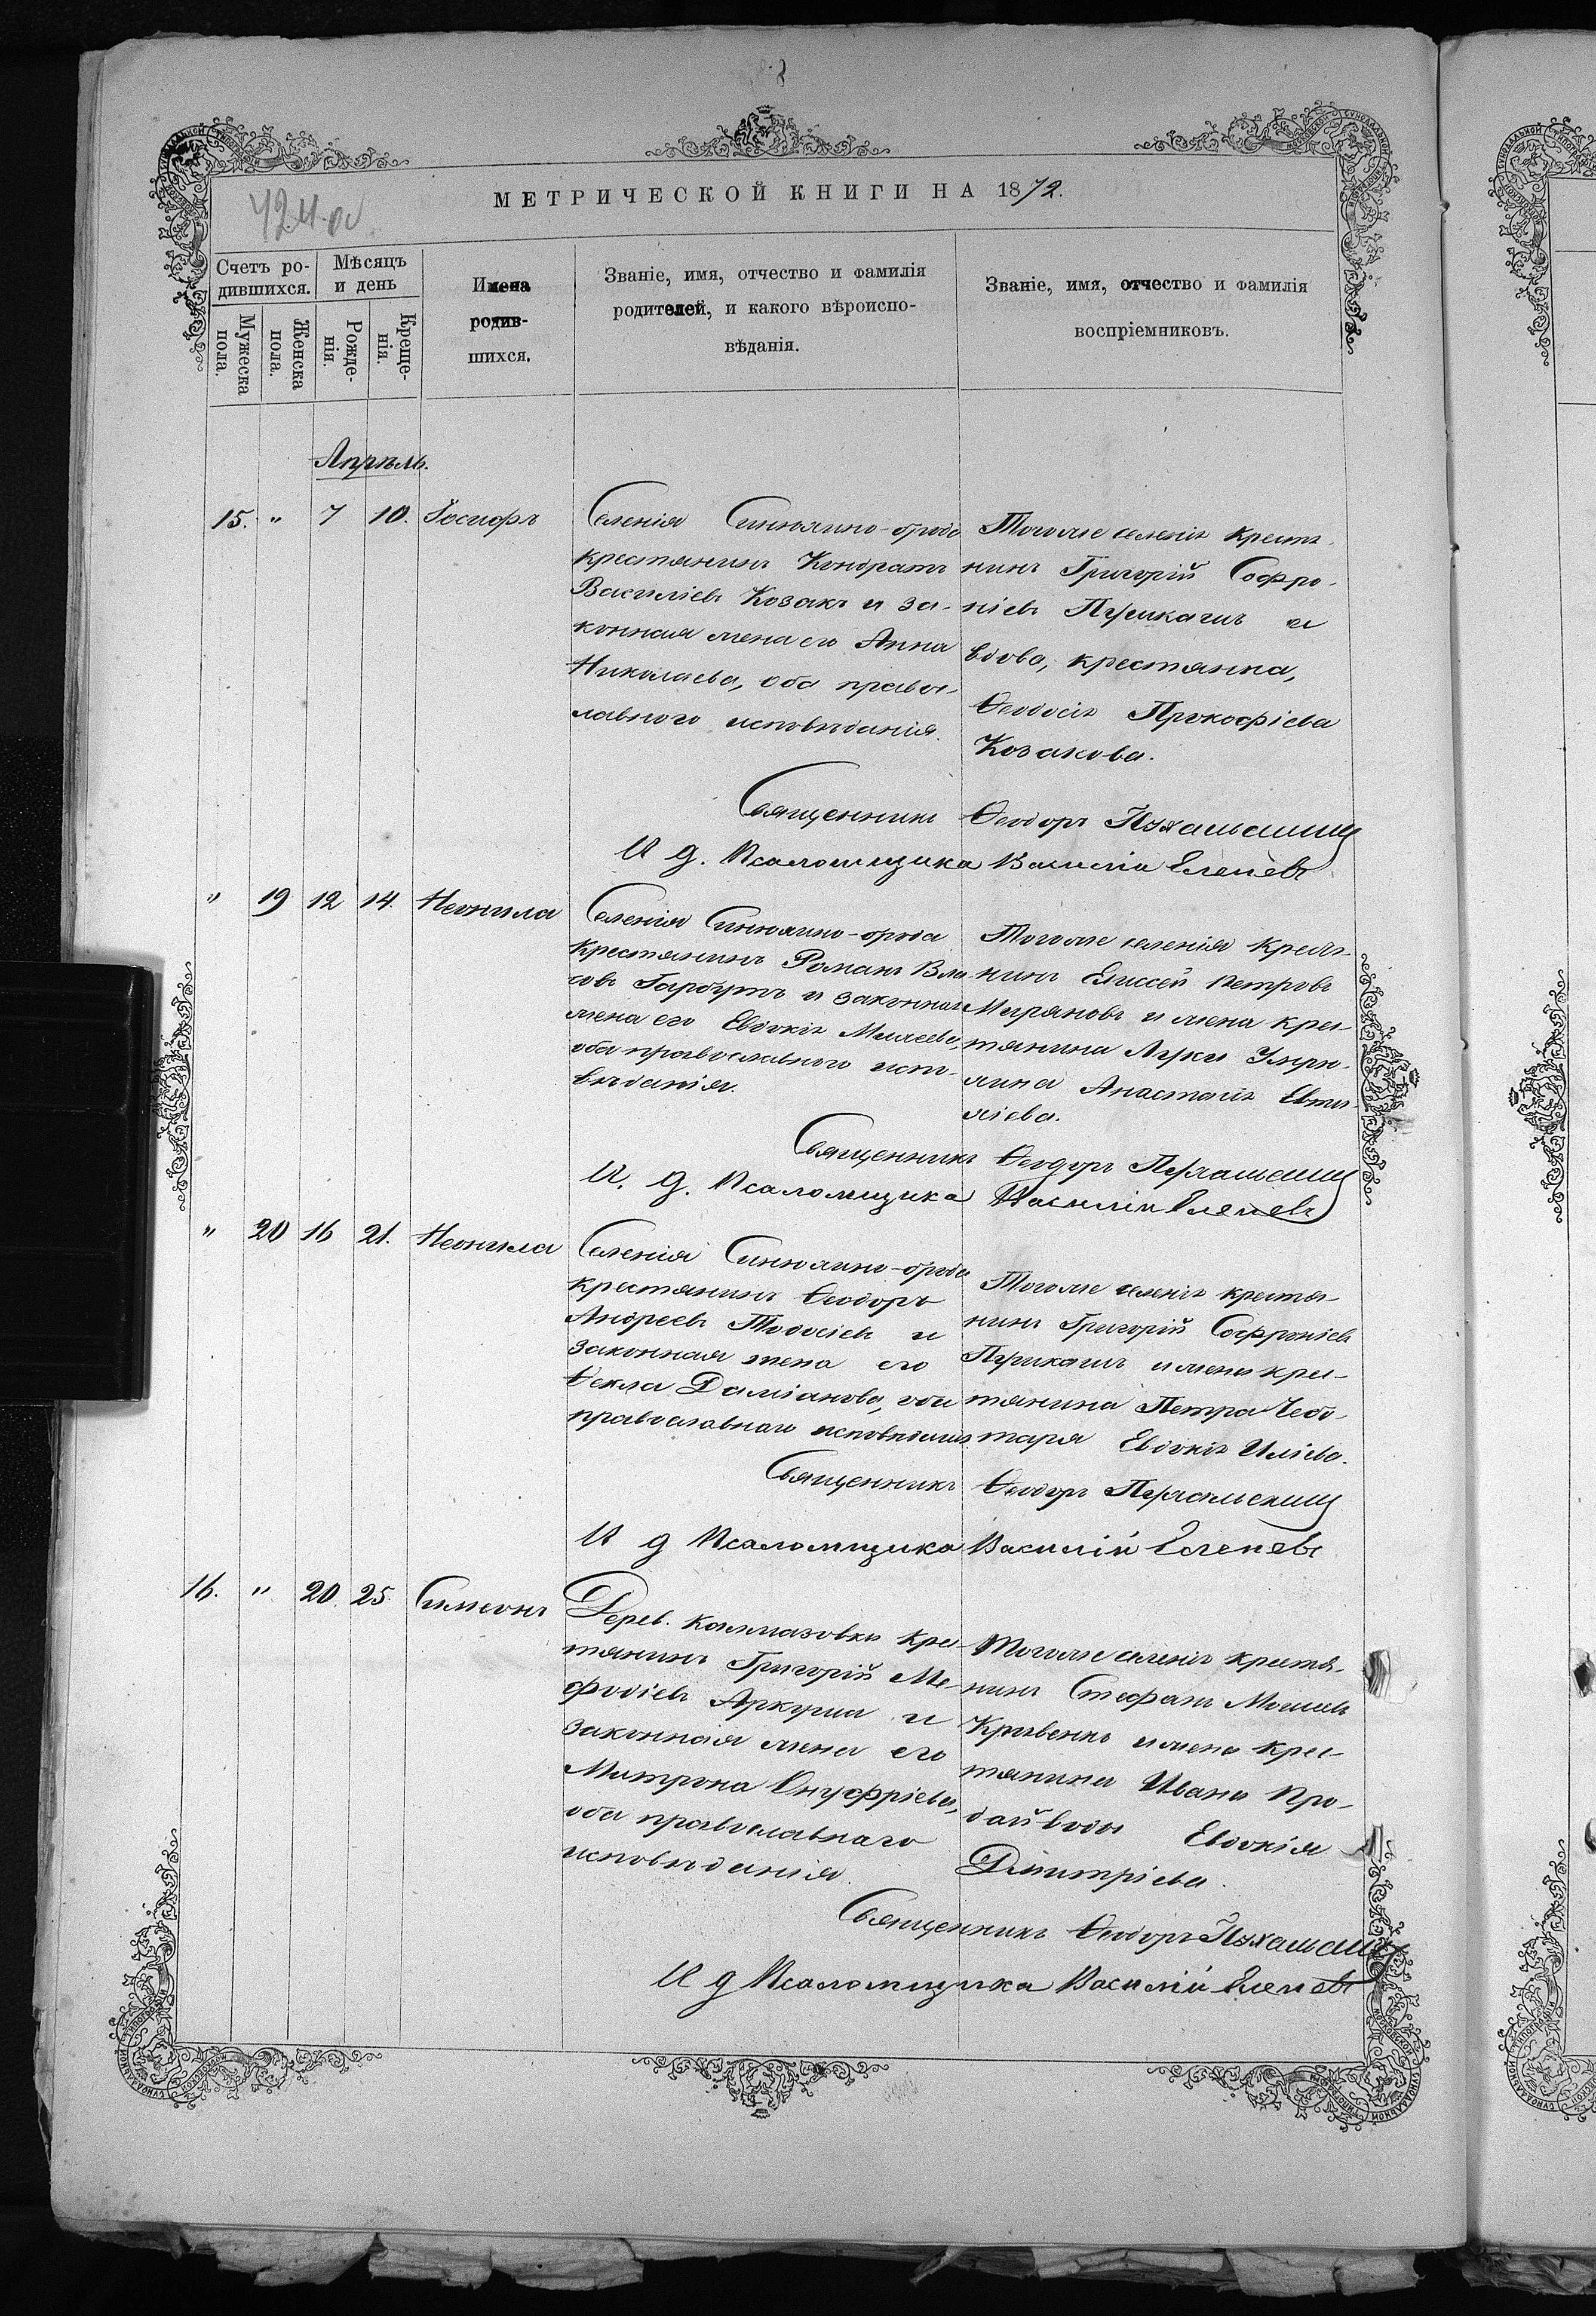 МЕТРИЧЕСКОЙ КНИГИ НА 1872.
Счетъ ро-
дившихся.
Мѣсяцъ
и день
Мужеска
пола.
Женска
пола.
Рожде-
нія.
Креще-
нія.
Имена
родив-
шихся.
Званіе, имя, отчество и фамилія
родителей, и какого вѣроиспо-
вѣданія.
Званіе, имя, отчество и фамилія
воспріемниковъ.
Апрѣль.
15. " 7 10. Іосифъ
Селенія
крестянинъ Кондратъ
Василіевъ Козакъ и за-
конная жена его Анна
Николаева, оба правос-
лавного исповѣданія.
Тогоже селенія крестя-
нинъ Григорій Софро-
ніевъ и
вдова, крестянка,
Ѳеодосія Прокофіева
Козакова.
Священникъ Ѳеодоръ
И д. Псаломщика Василій
" 19 12 14. Неонила
Селенія
крестянинъ Романъ Вла-
совъ и законная
жена его Евдокія
оба православного испо-
вѣданія.
Тогоже селенія крестя-
нинъ Елиссей Петровъ
и жена крес-
тянина Луки
Анастасія Евти-
хіева.
Священникъ Ѳеодоръ
И. д. Псаломщика Василій
" 20 16 21. Неонила
Селенія
крестянинъ Ѳеодоръ
Андреевъ Тодосіевъ и
законная жена его
Ѳекла Даміанова, оба
православнаго исповѣданія
Тогоже селенія крестя-
нинъ Григорій Софроніевъ
и жена крес-
тянина Петра Чебо-
таря Евдокія Иліева.
Священникъ Ѳеодоръ
И д Псаломщика Василій
16. " 20. 25. Симеонъ
Дерев. Калмазовки крес-
тянинъ Григорій Ме-
фодіевъ Аркуша и
законная жена его
Матрона Онуфріева,
оба православнаго
исповѣданія.
Тогоже селенія крестя-
нинъ Стефанъ
Кривенко и жена крес-
тянина Ивана Про-
дайвода Евдокія
Димитріева.
Священникъ Ѳеодоръ
И д Псаломщика Василій